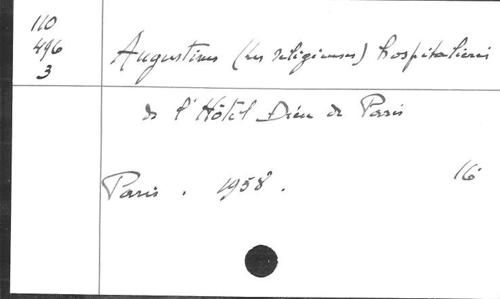 110
496
3
Augustines (les religieuses) hospitalières
de l'Hôtel Dieu de Paris
Paris . 1958 .
16